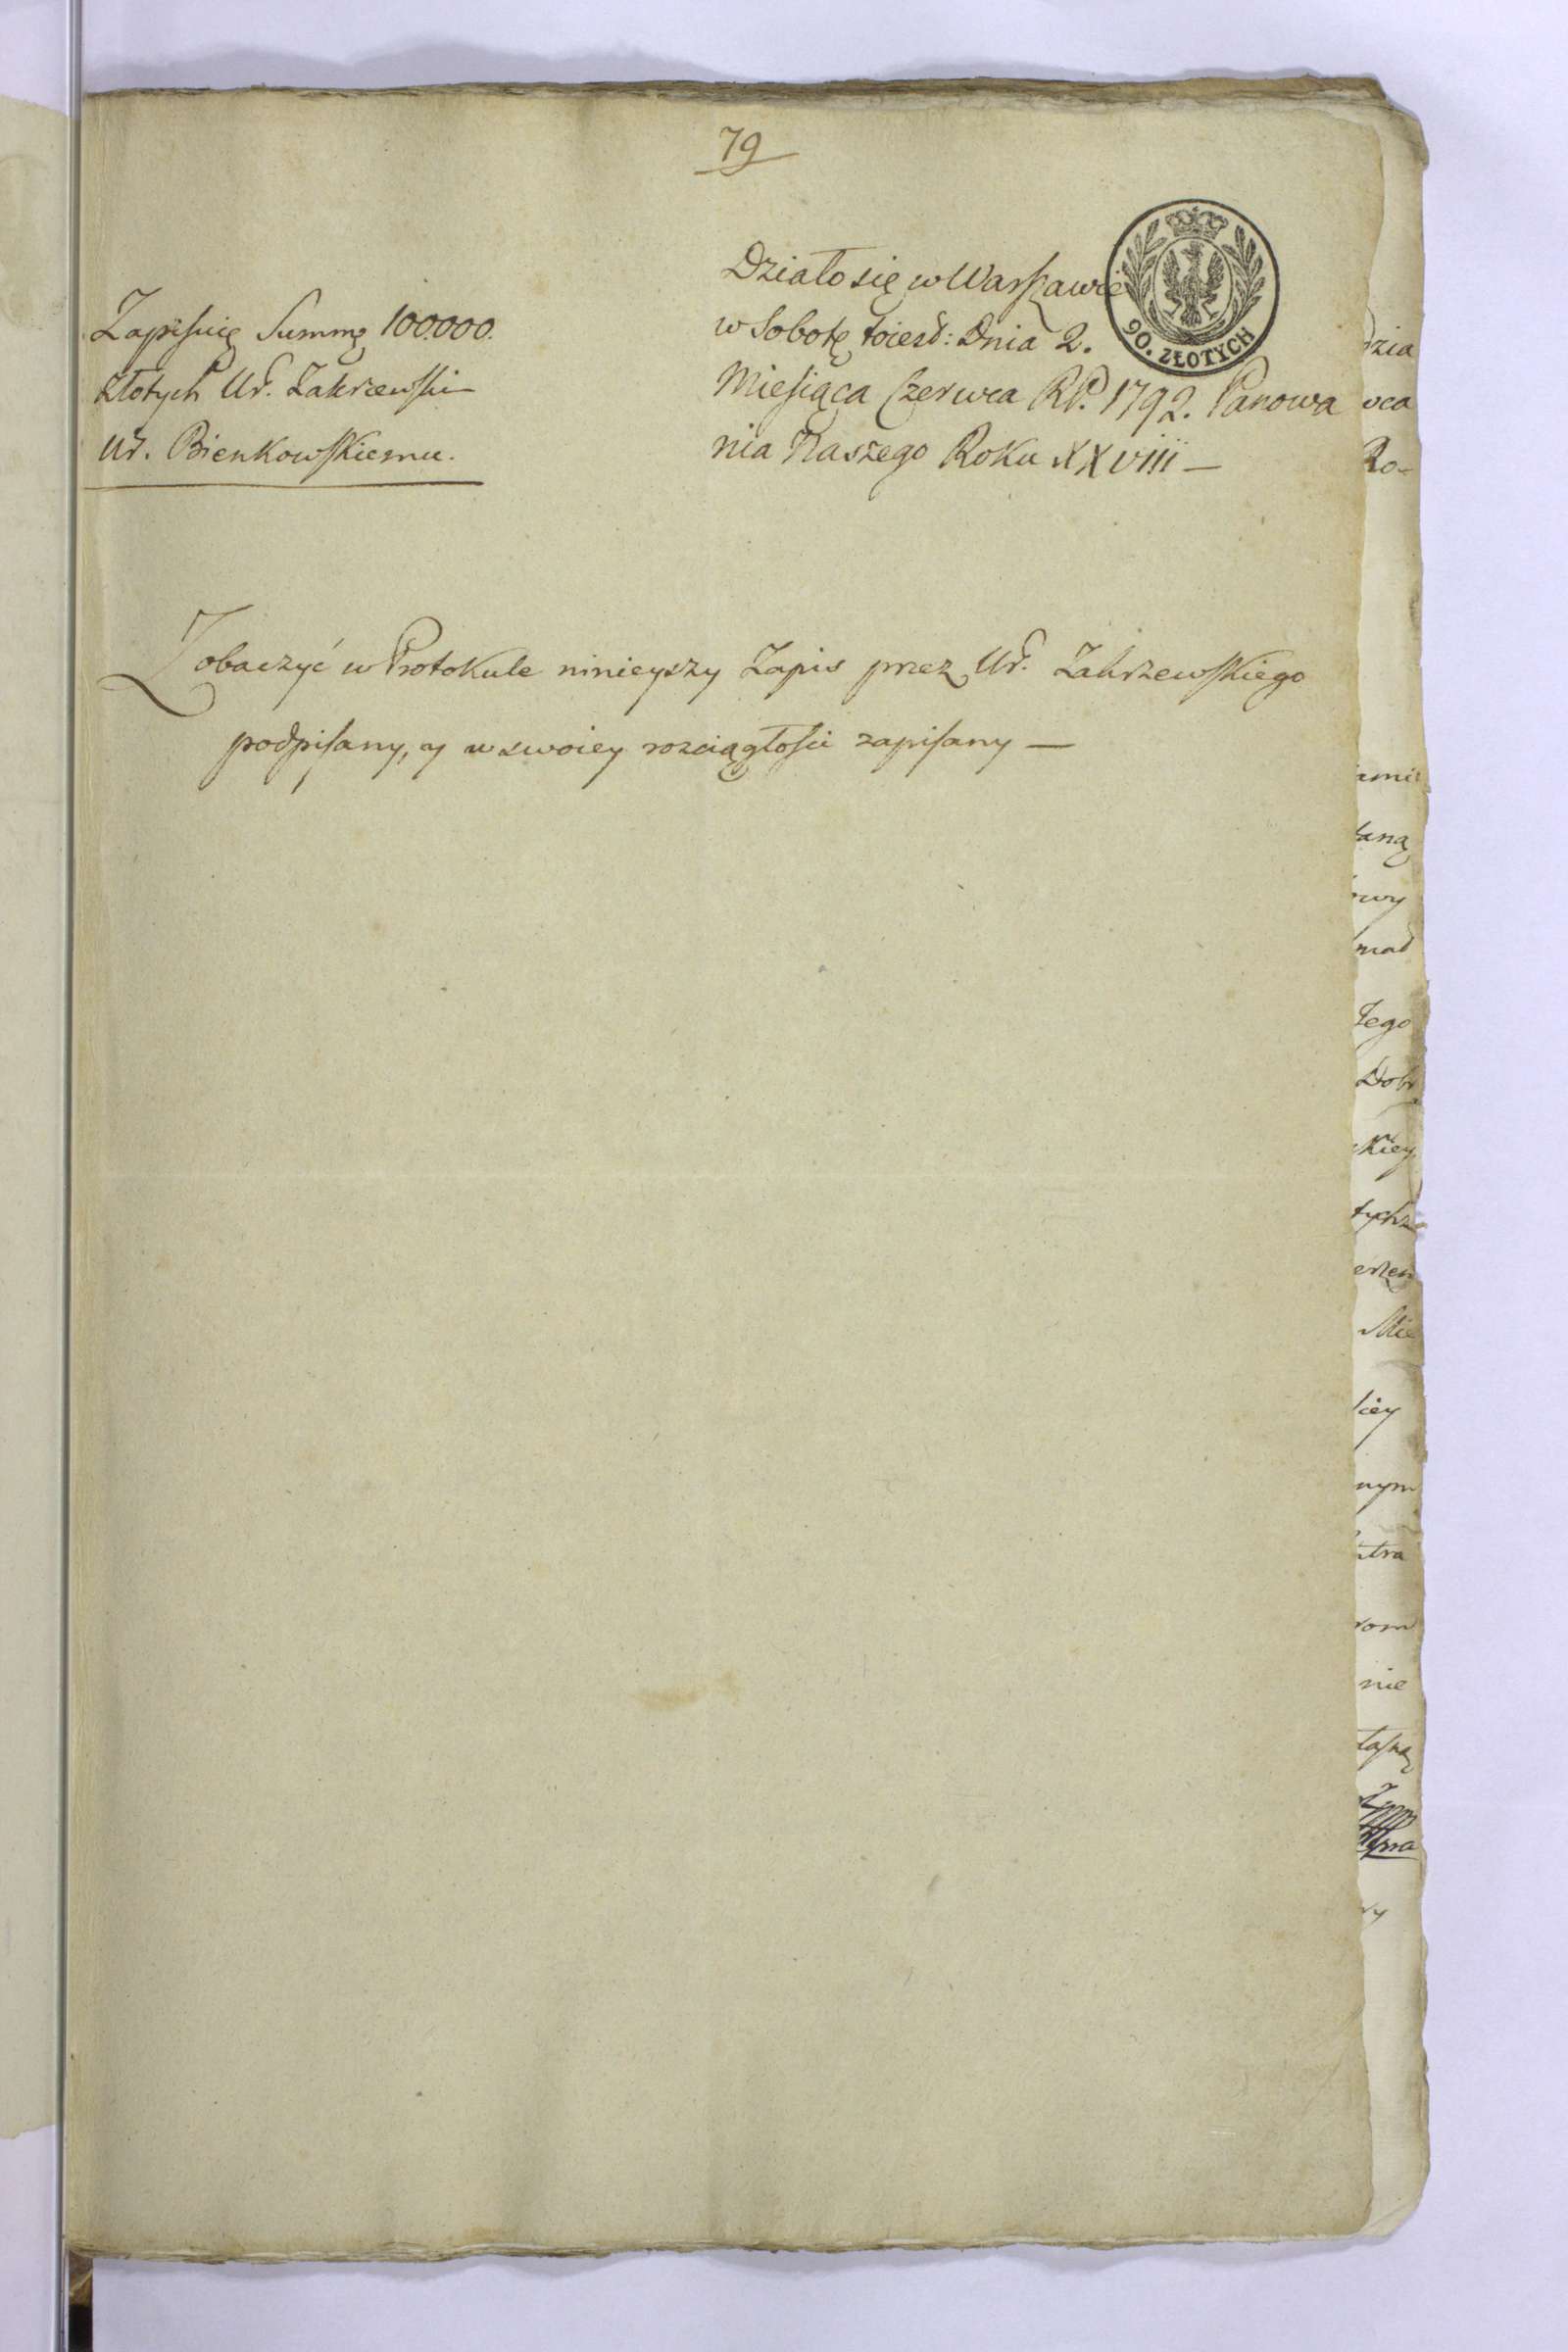 79
Zapisuię Summę 100000.
złotych Ur. Zakrzewski
Ur. Bienkowskiemu.
Działo się w Warszawie
w Sobotę toiest: Dnia 2.
Miesiąca Czerwca RP. 1792. Panowa
nia Naszego Roku XXVIII —
90. ZŁOTYCH
Zobaczyć w Protokule ninieyszy Zapis przez Ur. Zakrzewskiego
podpisany, y w swoiey rozciągłości zapisany —
dzia
wca
Ro-
owy
Tego
Dobr
skiey
tychże
Mie
nym
rom
nie